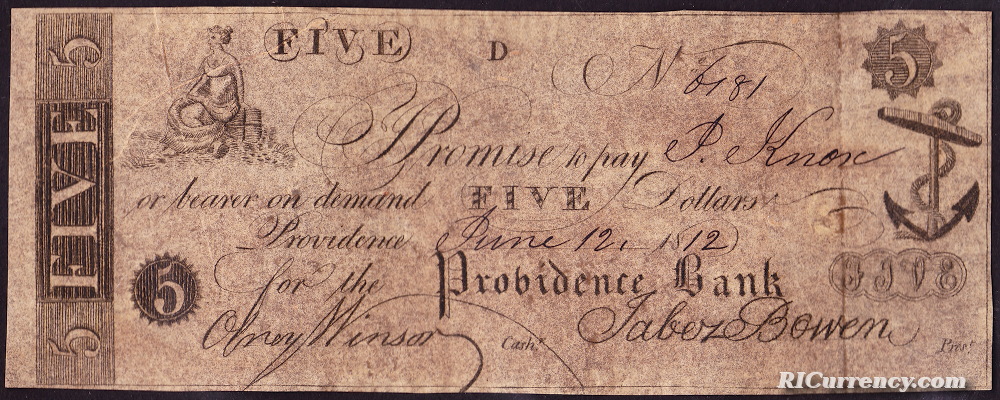 5 FIVE 5
FIVE D 5
No 6181
Promise to pay P. Knox
or bearer on demand FIVE Dollars
Providence June 12, 1812
5 for the Providence Bank FIVE
Olney Winsor Cashr. Jabez Bowen Prest.
RICurrency.com